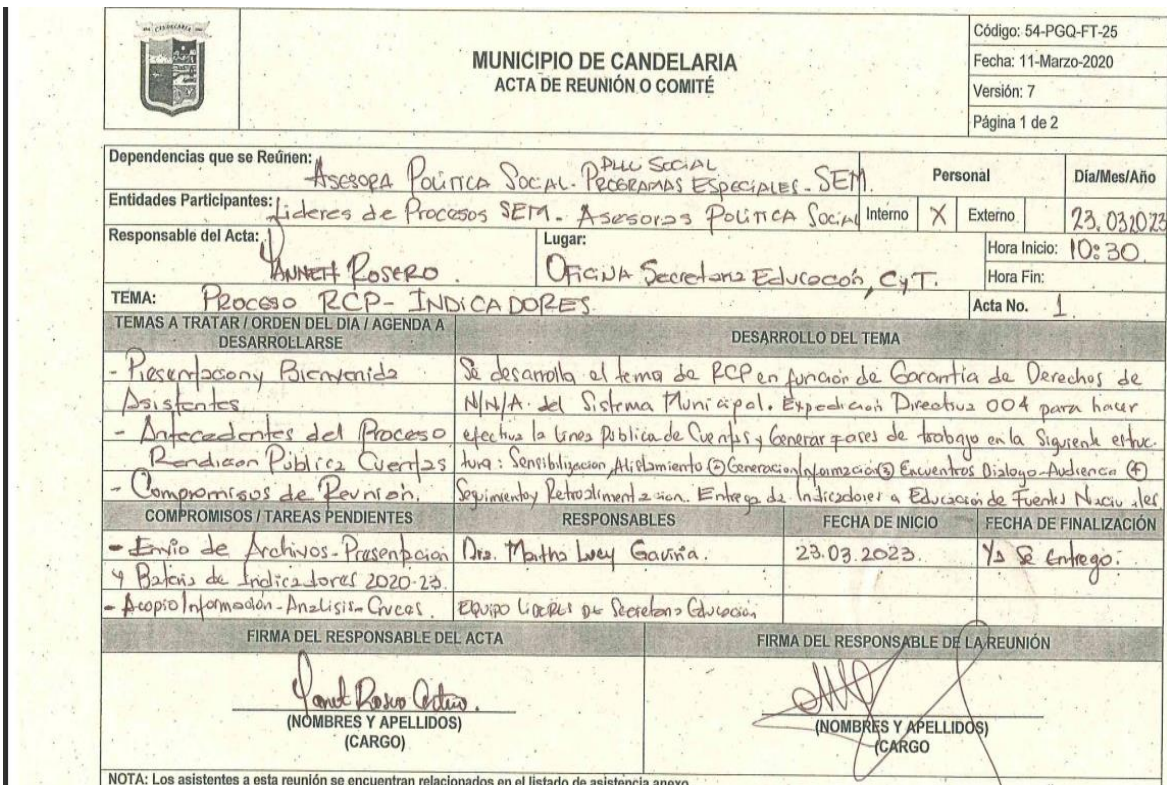 CANDELARIA
MUNICIPIO DE CANDELARIA
ACTA DE REUNIÓN O COMITÉ
Código: 54-PGQ-FT-25
Fecha: 11-Marzo-2020
Versión: 7
Página 1 de 2
Dependencias que se Reúnen: Asesora Política Social. Programas Especiales - SEM.
Social
Personal
Día/Mes/Año
Entidades Participantes: Lideres de Procesos SEM. Asesoras Política Social
Interno X Externo
23.032023
Responsable del Acta: Yannett Rosero.
Lugar: Oficina Secretaria Educacoón, CyT.
Hora Inicio: 10:30.
Hora Fin:
TEMA: Proceso RCP- INDICADORES.
Acta No. 1
TEMAS A TRATAR / ORDEN DEL DIA / AGENDA A DESARROLLARSE
DESARROLLO DEL TEMA
- Presentacion y Bienvenida
Asistentes
- Antecedentes del Proceso
Rendicion Publica Cuentas
- Compromisos de Reunión.
Se desarrolla el tema de RCP en función de Garantia de Derechos de
N/N/A. del Sistema Municipal. Expedicion Directiva 004 para hacer
efectiva la Pública de Cuentas y Generar fases de trabajo en la Siguiente estruc-
tura: Sensibilizacion, Alistamiento ② Generacion Información ③ Encuentros Dialogo-Audiencia ④
Seguimiento y Retroalimentacion. Entrega de Indicadores a Educación de Fuentes
COMPROMISOS / TAREAS PENDIENTES
RESPONSABLES
FECHA DE INICIO
FECHA DE FINALIZACIÓN
- Envio de Archivos-Presentación
y Bateria de Indicadores 2020-23.
Dra. Martha Lucy Gaviria.
23.03.2023.
Ya Se Entrego.
- Acopio Información-Analisis-Cruces.
Equipo Lideres de Secretaria Educación
FIRMA DEL RESPONSABLE DEL ACTA
FIRMA DEL RESPONSABLE DE LA REUNIÓN
(NOMBRES Y APELLIDOS)
(CARGO)
(NOMBRES Y APELLIDOS)
(CARGO
NOTA: Los asistentes a esta reunión se encuentran relacionados en el listado de asistencia anexo